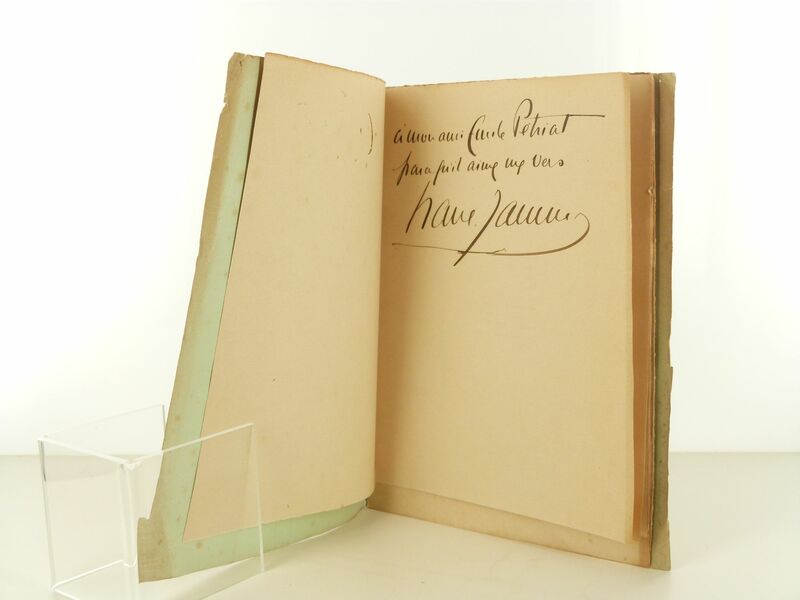 à mon ami Emile Pétriat
para qu'il aime mes vers
Francis Jammes